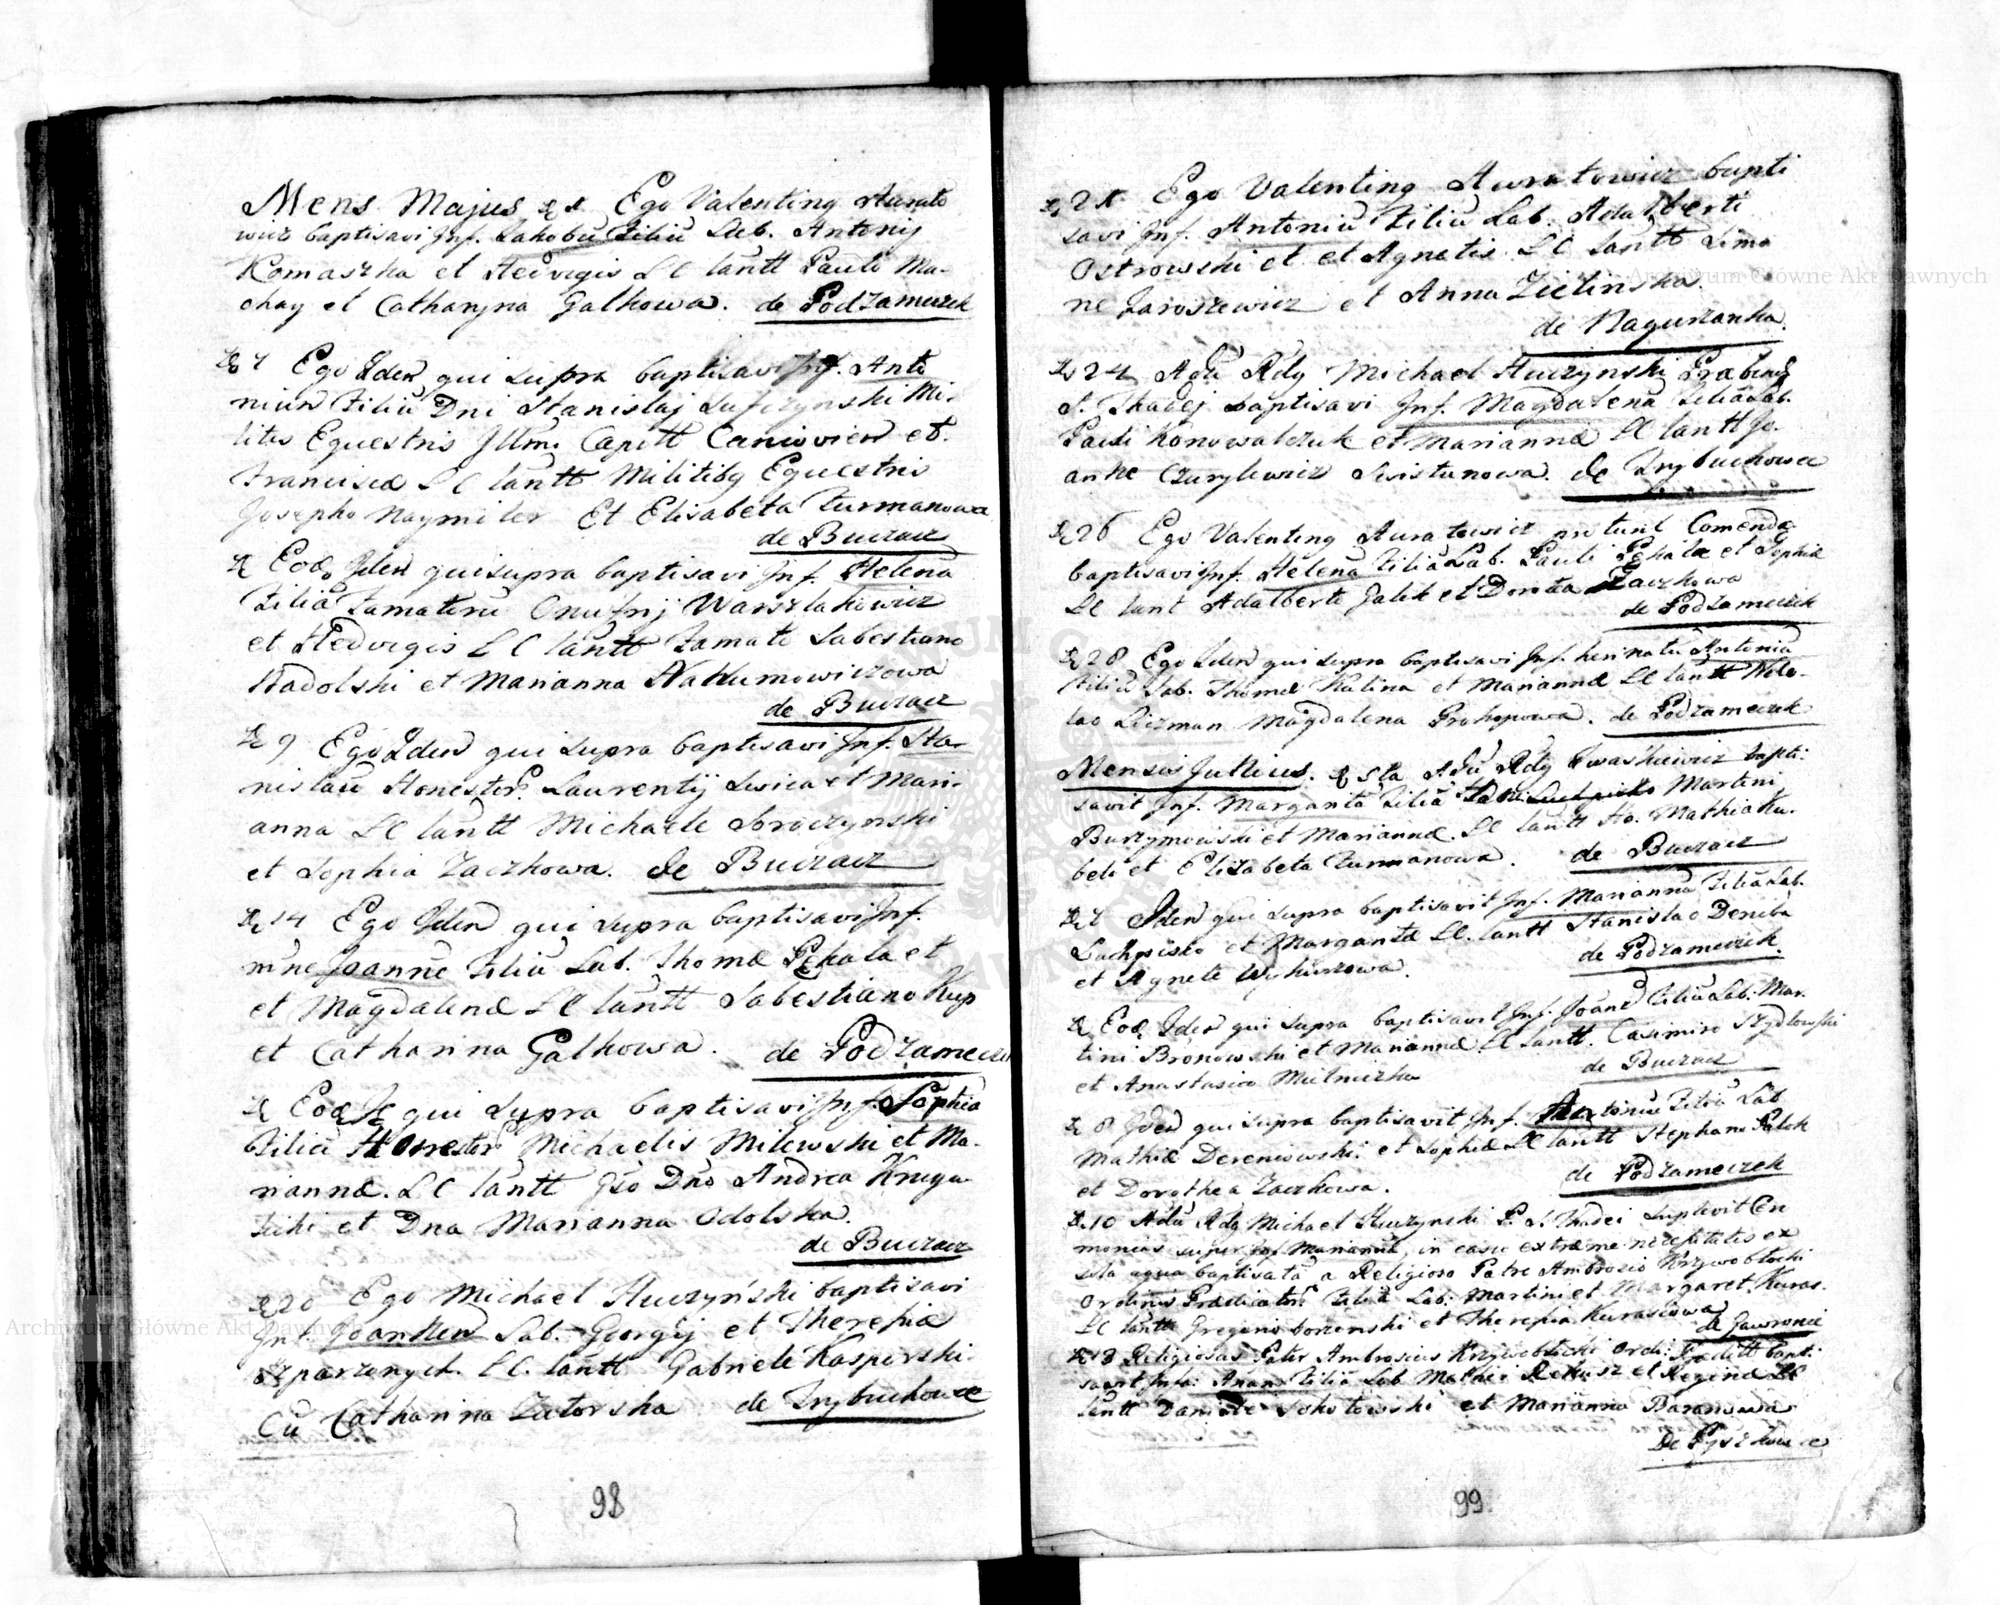 Mens Majus Ego Valenting Aurato
wicz baptisavi Inf. Jakobū Filiū Lab. Antonij
Romaszka et Hedvigis LC Santt Paulo Ma-
chay et Catharyna Galkowa. de Podzameczek
7 Ego Idem qui supra baptisavi Inf. Anto
nium Filiū Dni Stanislaj Sufczynski Mi-
litis Equestris Illmi Capitt Caniovien et
Francisca LC Santt Militibq Equestris
Josepho Naymiler Et Elisabeta Turmanowa
de Buczacz
Eod. Idem qui supra baptisavi Inf. Helena
Filiā Famateru Onufrij Warszlakowicz
et Hedvigis LC Santt Famato Sabestiano
Radolski et Marianna Nahumowiczowa
de Buczacz
9 Ego Idem qui supra baptisavi Inf. Sta-
nislaū Honestor. Laurentij Swica et Mari-
anna LC Santt Michaele Soroczynski
et Sophia Zaczkowa. de Buczacz
14 Ego Idem qui supra baptisavi Inf.
mine Joanne Filiū Lab. Thomæ Pękala et
et Magdalenæ LC Santt Sabestiano Kup
et Catharina Galkowa. de Podzameczek
Eod. qui supra baptisavi Inf. Sophia
Filiā Honestor Michaelis Milewski et Ma-
riannæ. LC Santt Gso Dno Andrea Kruga
et Dna Marianna Odolska.
de Buczacz
20 Ego Michael Huczyński baptisavi
Inf. Joannem Lab. Georgij et Theresiæ
Szparzenych. LC. Santt Gabriele Kasperski
Cū Catharina Zatorska de Trybuchowce
98
Ego Valenting Auratowicz bapti
savi Inf. Antoniū Filiū Lab. Adalberti
Ostrowski et et Agnetis LC Santt Simo
ne Jaroszewicz et Anna Zielinska.
de Nagurzanka.
24 Adū Rdq Michael Huczynski
S. Thadej baptisavi Inf. Magdalenā Filiā Lab.
Pauli Konowalczuk et Mariannæ LC Santt Jo.
anne Czurylewicz Swistunowa. de Trybuchowce
26 Ego Valenting Auratowicz pro tunc Comendæ
baptisavi Inf. Helenā Filiā Lab. Pauli Pękala et Sophiæ
LC Sant Adalberto Galek et Dorota Zaczkowa
de Podzameczek
28 Ego Idem qui supra baptisavi Inf. Antonia
Filiā Lab. Thomæ Kalina et Mariannæ LC Santt Nico-
lao Liczman Magdalena Prokopowa. de Podzameczek
Mensis Jullius. 5ta Adū Rdq Iwaśkiewicz bapti-
savit Inf. Margaritā Filiā Martini
Burzymowski et Mariannæ. LC Santt Ho. Mathia Ku-
beli et Elizabeta Turmanowa. de Buczacz
7 Idem qui supra baptisavit Inf. Mariannā Filiā Lab.
et Margaritæ LC. Santt Stanislao Deniba
et Agnete Wichurzowa. de Podzameczek.
Eod. Idem qui supra baptisavit Inf. Joane Filiū Lab. Mar-
tini Bronowski et Mariannæ LC Santt. Casimiro Szydlowski
et Anastasia Mielniczka de Buczacz
8 Idem qui supra baptisavit Inf. Antoniū Filiū Lab
Mathiæ Dereniowski et Sophiæ LC Santt Stephano Palek
et Dorothea Zaczkowa. de Podzameczek
10 Adū Rdq Michael Huczynski P. S. Thadei Suplevit Cere
monias super Inf. Mariannā, in casu extræme necesitatis ex
sola aqua baptisatā a Religioso Patre Ambrosio Krzywoblocki
Ordinis Prædicator. Filiā Lab. Martini et Margaret. Kuras.
LC Santt Gregorio et Theresia Kurasiowa
de Jawronce
13 Religiosus Pater Ambrosius Krzywoblocki Ordi: bapti
savit Infa: Filiā Lab Mathei et Reginæ LC
Santt Daniele Sokolowski et Marianna Baranowa
De Pyszkowce
99.